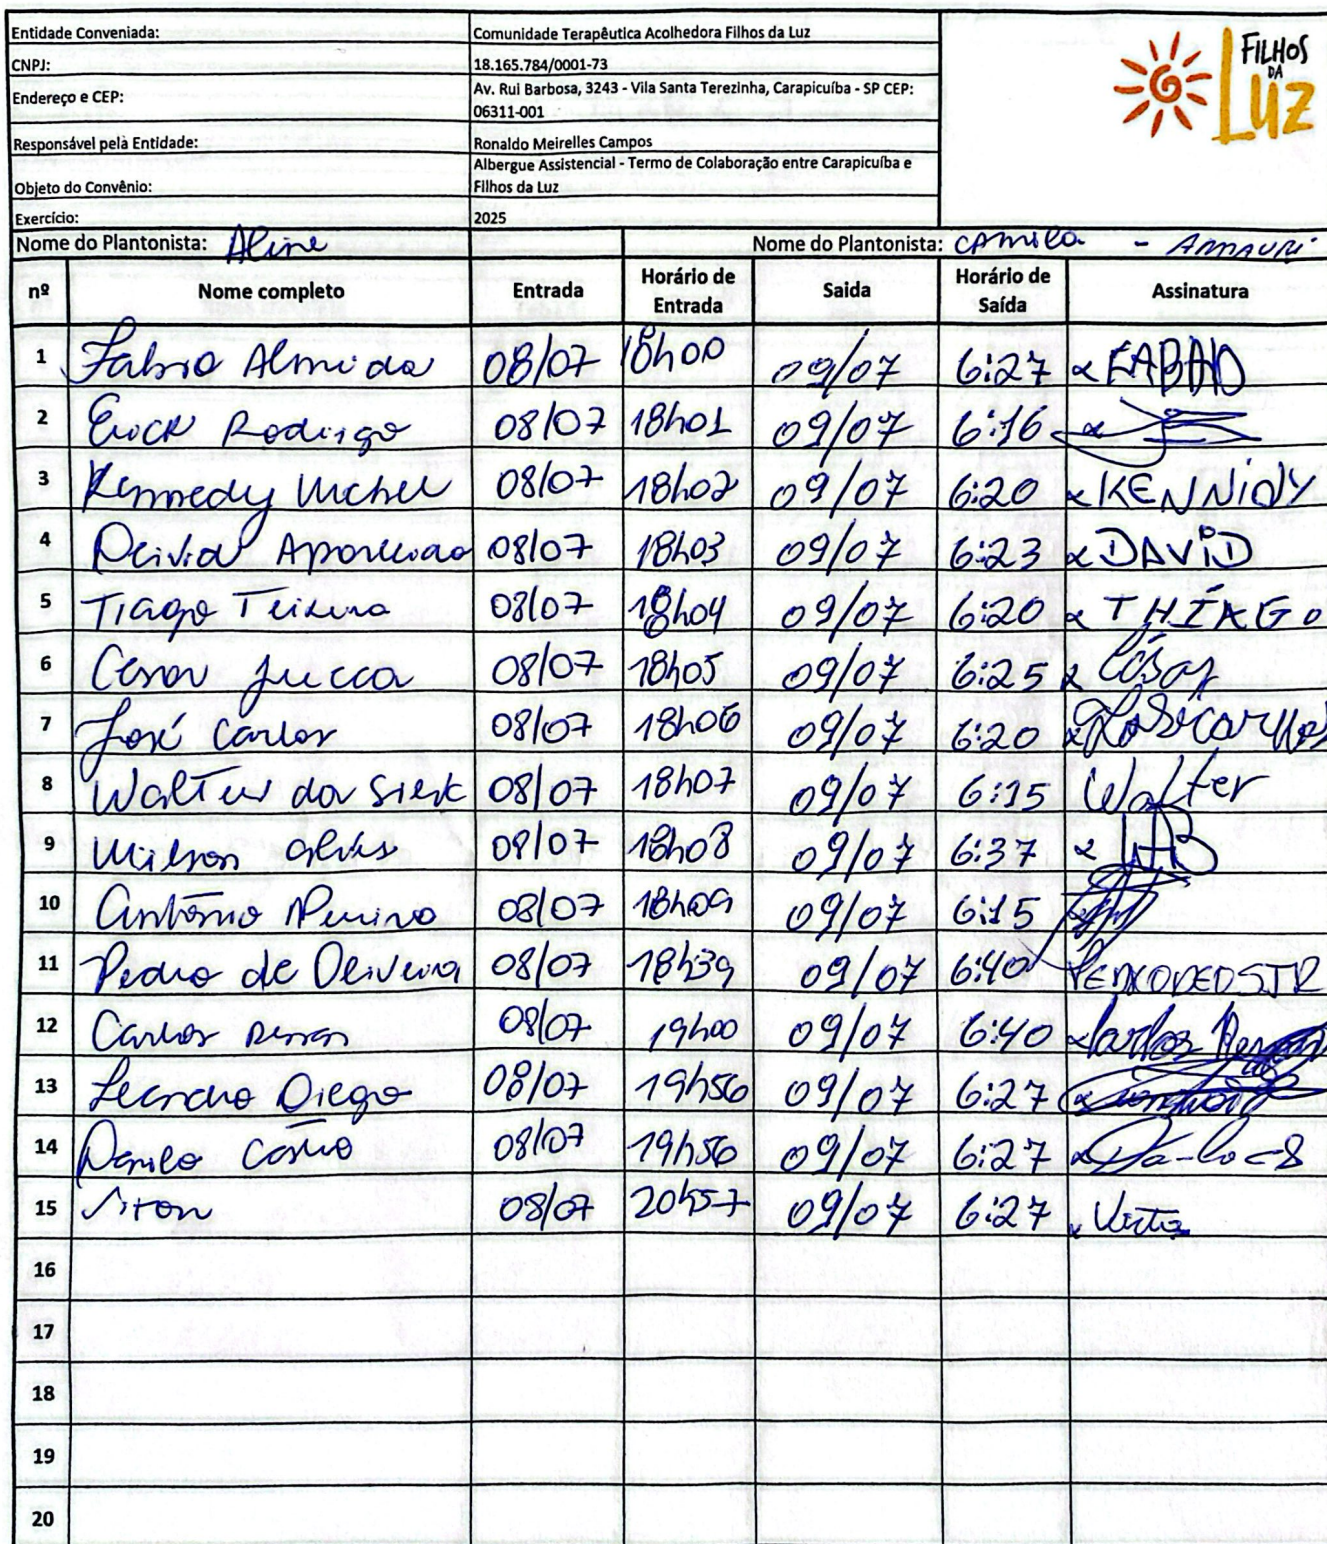 FILHOS DA LUZ
Entidade Conveniada: Comunidade Terapêutica Acolhedora Filhos da Luz
CNPJ: 18.165.784/0001-73
Endereço e CEP: Av. Rui Barbosa, 3243 - Vila Santa Terezinha, Carapicuíba - SP CEP: 06311-001
Responsável pela Entidade: Ronaldo Meirelles Campos
Objeto do Convênio: Albergue Assistencial - Termo de Colaboração entre Carapicuíba e Filhos da Luz
Exercício: 2025
Nome do Plantonista: Aline Nome do Plantonista: Camila - Amauri
nº Nome completo Entrada Horário de Entrada Saida Horário de Saída Assinatura
1 Fabio Almida 08/07 18h00 09/07 6:27 x FABIO
2 Erick Rodrigo 08/07 18h01 09/07 6:16 x
3 Kennedy Michel 08/07 18h02 09/07 6:20 x KENNIDY
4 Deivid Aparecido 08/07 18h03 09/07 6:23 x DAVID
5 Tiago Teixeira 08/07 18h04 09/07 6:20 x THIAGO
6 Cesar Jucca 08/07 18h05 09/07 6:25 x César
7 José Carlos 08/07 18h06 09/07 6:20 x
8 Walter da Silva 08/07 18h07 09/07 6:15 Walter
9 Wilson Alves 08/07 18h08 09/07 6:37 x
10 Antônio 08/07 18h09 09/07 6:15
11 Pedro de Oliveira 08/07 18h39 09/07 6:40
12 Carlos 08/07 19h00 09/07 6:40 x Carlos
13 Leandro Diego 08/07 19h56 09/07 6:27 x
14 Danilo Castro 08/07 19h56 09/07 6:27 x
15 Vitor 08/07 20h57 09/07 6:27 x
16
17
18
19
20